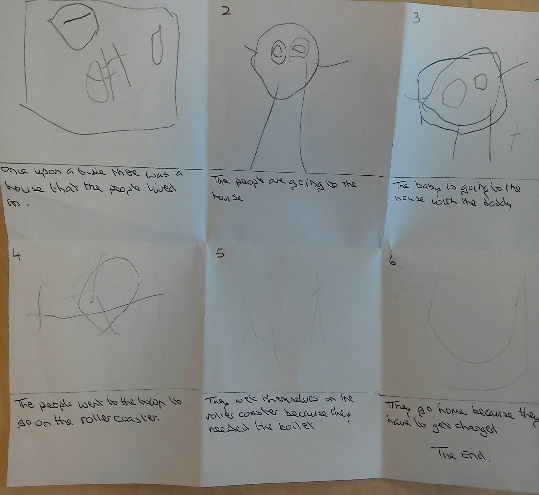 2
3
once upon a time there was a
house that the people lived
in.
The people are going to the
house
The baby is going to the
house with the daddy
4
5
6
The people went to the to
go on the rollercoaster.
They wet themselves on the
roller coaster because they
needed the toilet
They go home because they
have to get changed
The End.